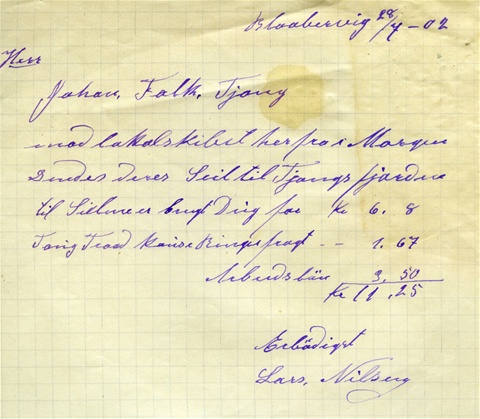 Blaabervig 28/7 - 02
Herr
Johan, Falk, Tjong
med lokalskibet herfra i Morgen
Sendes deres Seil til Tjongsfjorden
til Seilmeer brugt Dug for Kr 6. 8
Tong Traad Kause Ringe fragt - - 1.67
Arbeidsløn 3.50
Kr 11.25
Ærbödigst
Lars, Nilsen